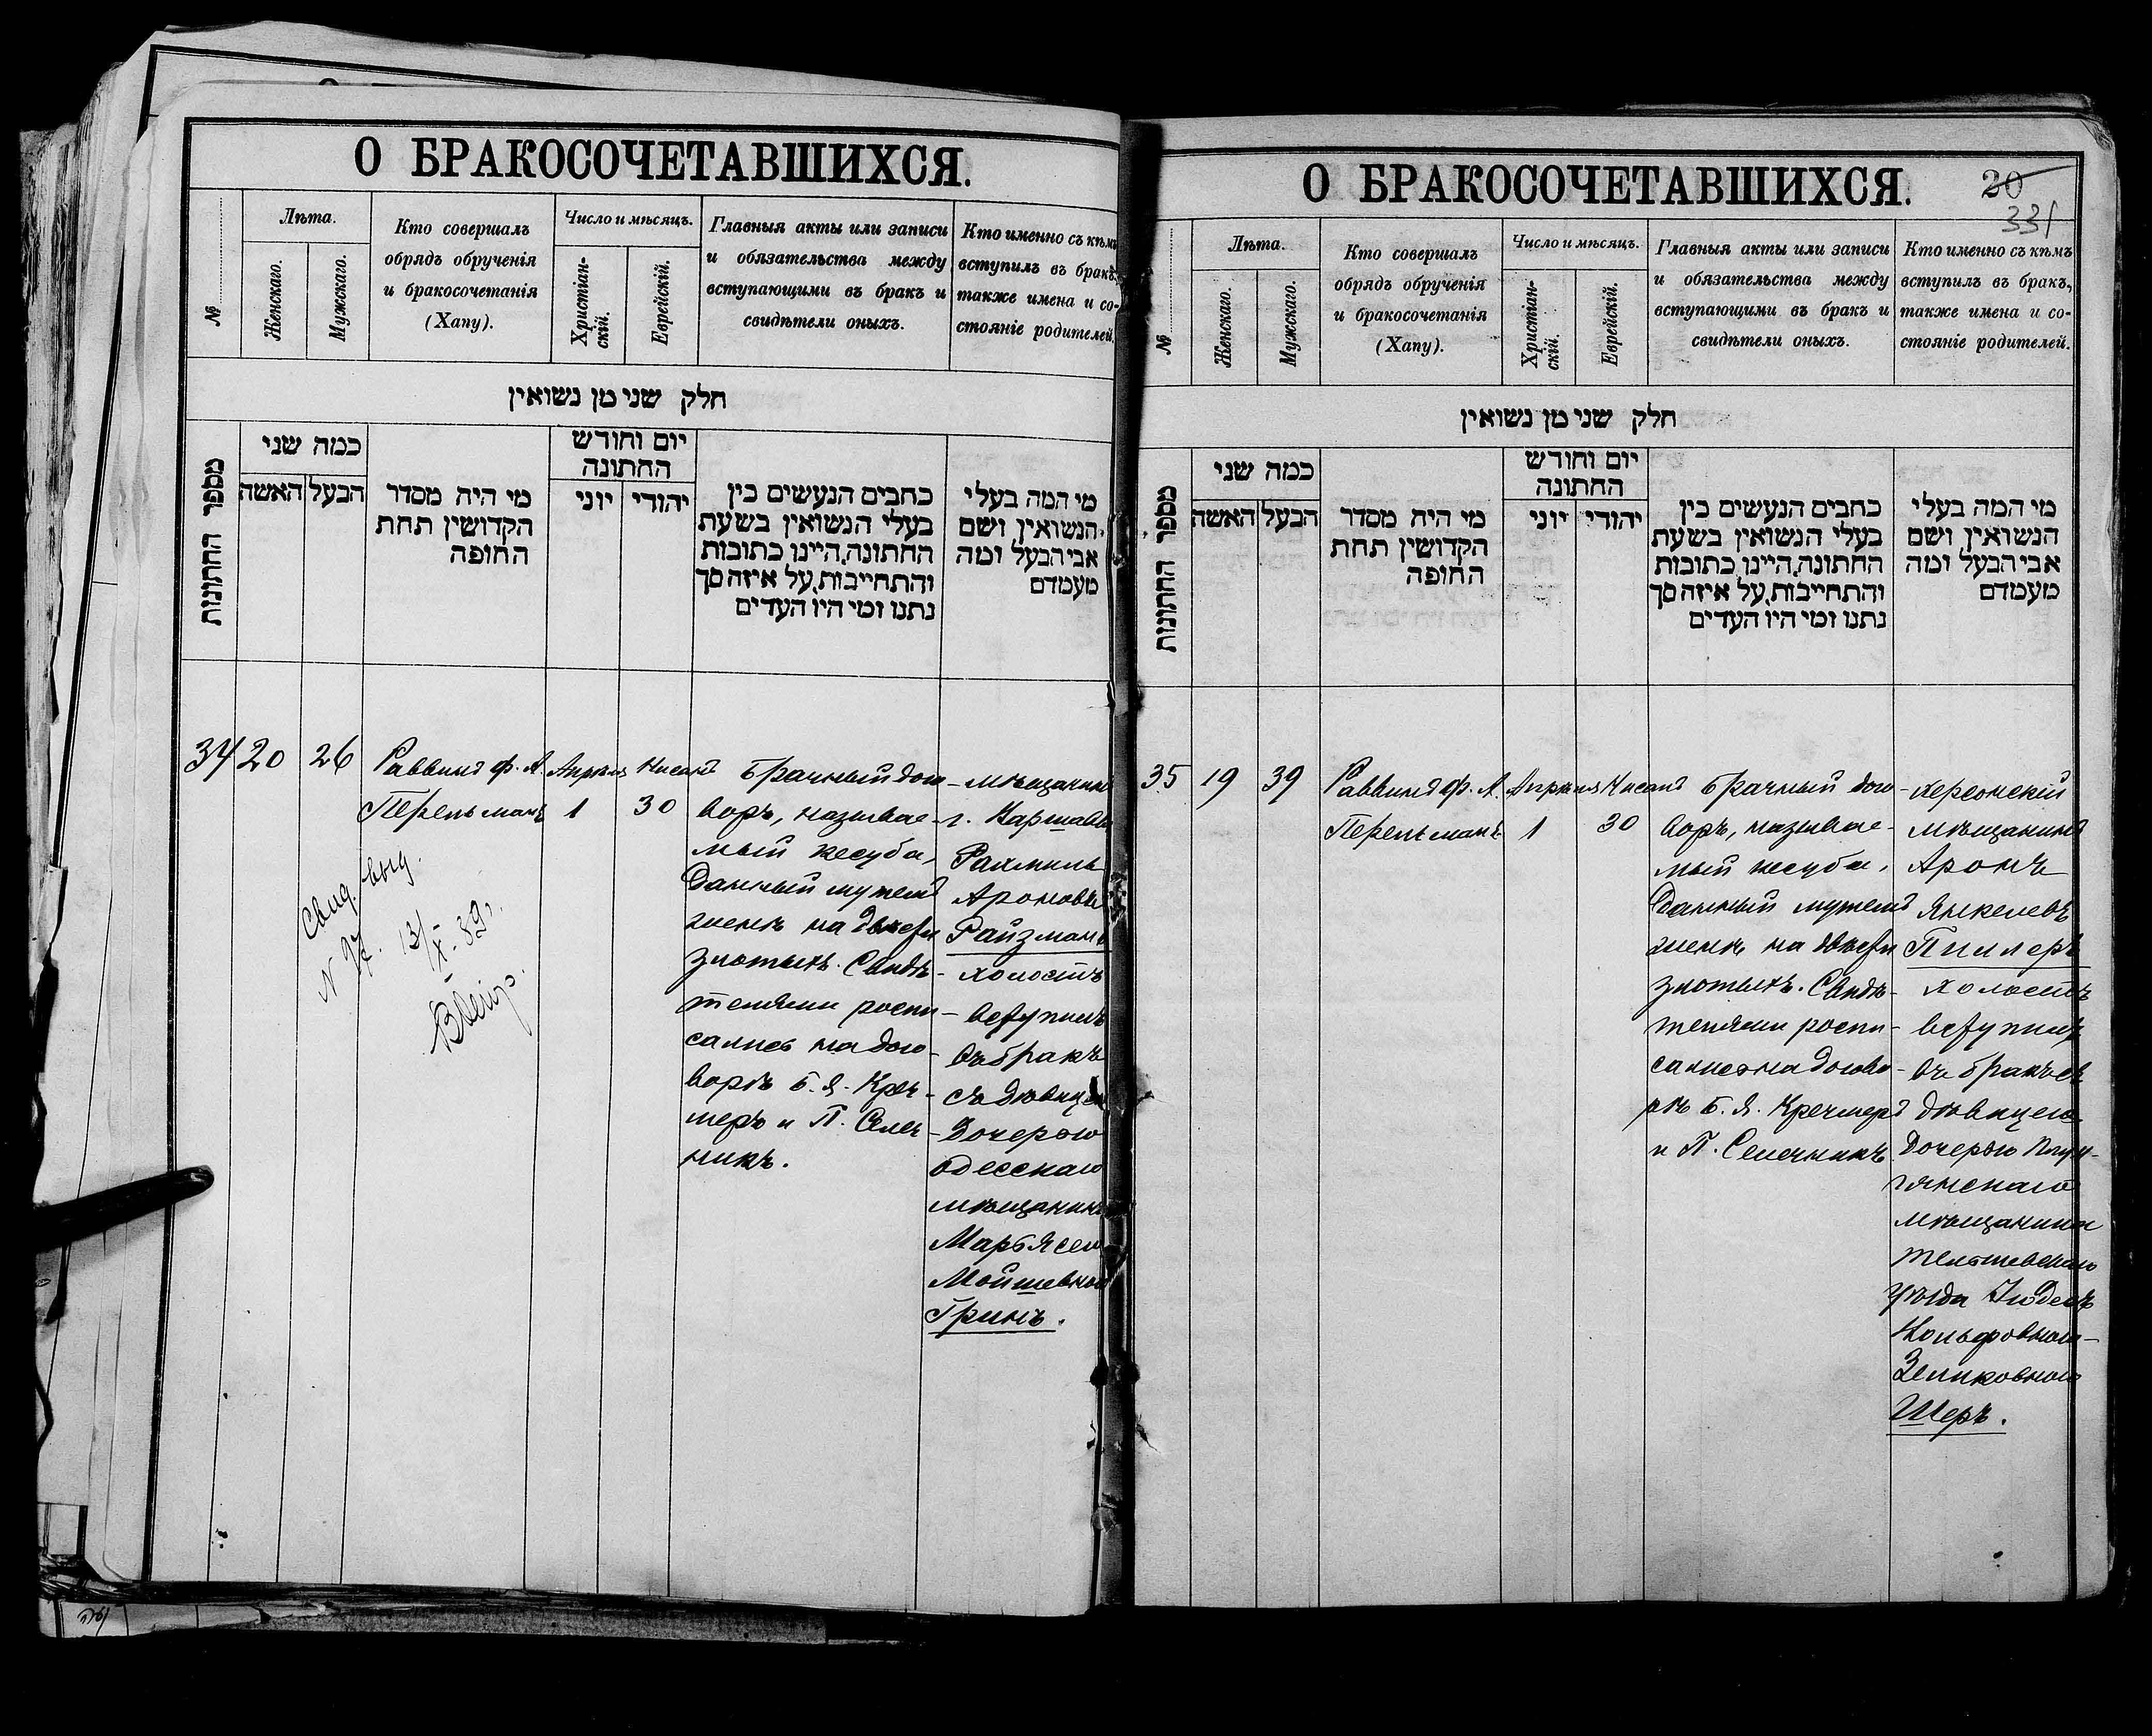 О БРАКОСОЧЕТАВШИХСЯ.
№
Лѣта.
Женскаго.
Мужскаго.
Кто совершалъ
обрядъ обрученія
и бракосочетанія
(Хапу).
Число и мѣсяцъ.
Христіан-
скій.
Еврейскій.
Главныя акты или записи
и обязательства между
вступающими въ бракъ и
свидѣтели оныхъ.
Кто именно съ кѣмъ
вступилъ въ бракъ,
также имена и со-
стояніе родителей.
חלק שני מן נשואין
מספר החתונות
כמה שני
האשה
הבעל
מי היה מסדר
הקדושין תחת
החופה
יום וחודש
החתונה
יוני
יהודי
כתבים הנעשים בין
בעלי הנשואין בשעת
החתונה, היינו כתובות
והתחייבות, על איזה סך
נתנו ומי היו העדים
מי המה בעלי
הנשואין ושם
אבי הבעל ומה
מעמדם
34
20
26
Раввинъ Ф. А.
Перельманъ
Апрѣля
1
Нисанъ
30
Брачный дого-
воръ, называе-
мый кесуба,
данный мужемъ
женѣ на двѣсти
злотыхъ. Свидѣ-
телями роспи-
сались на дого-
ворѣ Б. Я. Креч-
меръ и П. Селеч-
никъ.
мѣщанинъ
г. Варшавы
Рахмиль
Ароновъ
Райзманъ
холостъ
вступилъ
въ бракъ
съ дѣвицею
дочерью
одесскаго
мѣщанина
Марьясею
Мойшевною
Гринъ.
Свид. выд.
N 97. 13/X-39г.
О БРАКОСОЧЕТАВШИХСЯ.
20
331
№
Лѣта.
Женскаго.
Мужскаго.
Кто совершалъ
обрядъ обрученія
и бракосочетанія
(Хапу).
Число и мѣсяцъ.
Христіан-
скій.
Еврейскій.
Главныя акты или записи
и обязательства между
вступающими въ бракъ и
свидѣтели оныхъ.
Кто именно съ кѣмъ
вступилъ въ бракъ,
также имена и со-
стояніе родителей.
חלק שני מן נשואין
מספר החתונות
כמה שני
האשה
הבעל
מי היה מסדר
הקדושין תחת
החופה
יום וחודש
החתונה
יוני
יהודי
כתבים הנעשים בין
בעלי הנשואין בשעת
החתונה, היינו כתובות
והתחייבות, על איזה סך
נתנו ומי היו העדים
מי המה בעלי
הנשואין ושם
אבי הבעל ומה
מעמדם
35
19
39
Раввинъ Ф. А.
Перельманъ
Апрѣля
1
Нисанъ
30
Брачный дого-
воръ, называе-
мый кесуба,
данный мужемъ
женѣ на двѣсти
злотыхъ. Свидѣ-
телями роспи-
сались на догово-
рѣ Б. Я. Кречмеръ
и П. Селечникъ
херсонскій
мѣщанинъ
Аронъ
Янкелевъ
Пиллеръ
холостъ
вступилъ
въ бракъ съ
дѣвицею
дочерью Плун-
гянскаго
мѣщанина
Тельшевскаго
уѣзда
Зеликовною
Шеръ.